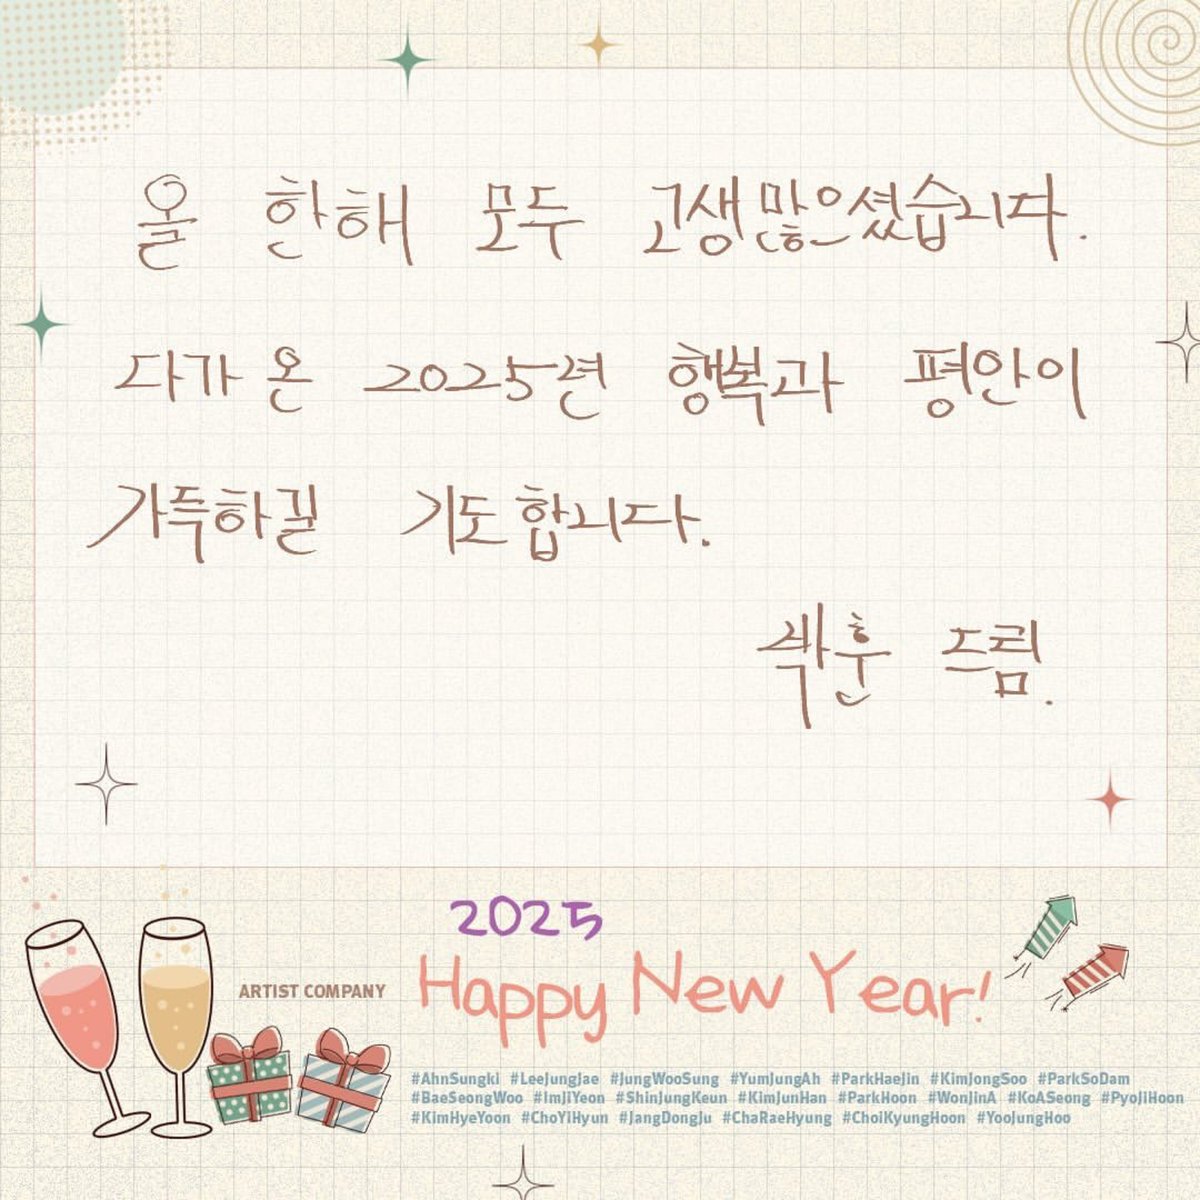 올 한해 모두 고생많으셨습니다.
다가온 2025년 행복과 평안이
가득하길 기도합니다.
박훈 드림.
2025
ARTIST COMPANY
Happy New Year!
#AhnSungki #LeeJungJae #JungWooSung #YumJungAh #ParkHaeJin #KimJongSoo #ParkSoDam
#BaeSeongWoo #ImJiYeon #ShinJungKeun #KimJunHan #ParkHoon #WonJinA #KoASeong #PyoJiHoon
#KimHyeYoon #ChoYiHyun #JangDongJu #ChaRaeHyung #ChoiKyungHoon #YooJungHoo